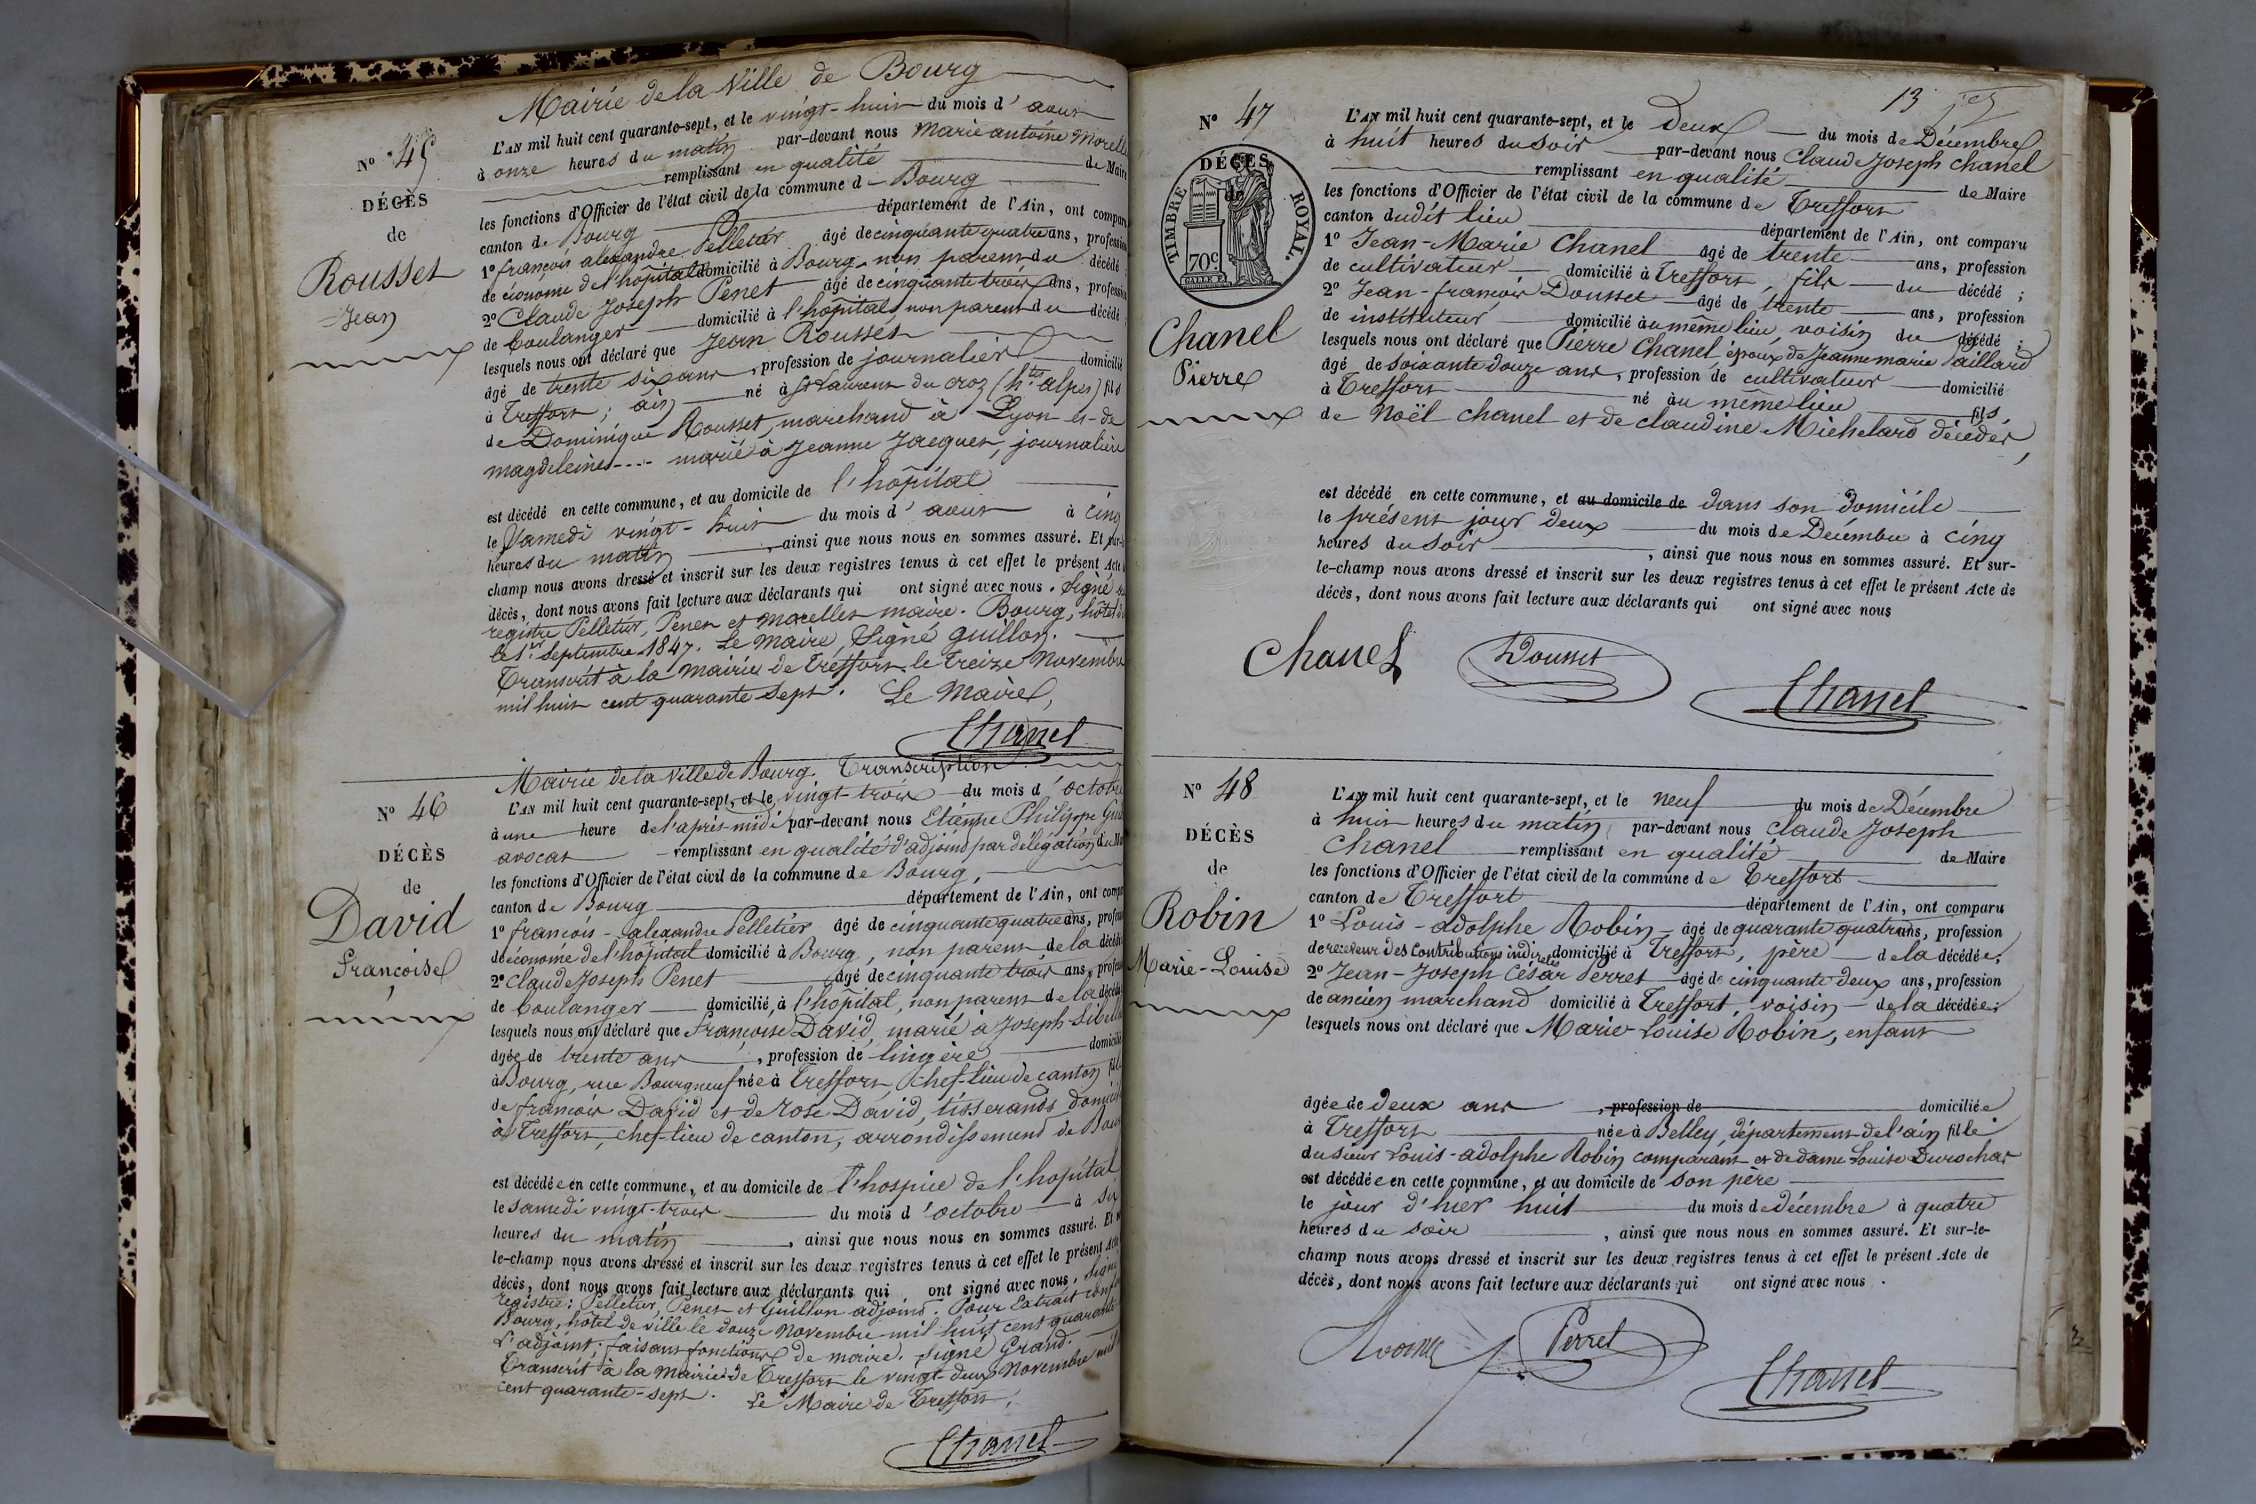 Mairie de la Ville de Bourg
N° 45
DÉCÈS
de
Rousset
Jean
L'AN mil huit cent quarante-sept, et le vingt-huit du mois d'aout
à onze heures du matin par-devant nous Marie antoine Morelle
remplissant en qualité de Maire
les fonctions d'Officier de l'état civil de la commune d Bourg
canton de Bourg département de l'Ain, ont comparu
1° françois alexandre Pelletier âgé de cinquante quatre ans, profession
de économe de l'hôpital domicilié à Bourg non parent du décédé
2° Claude Joseph Penet âgé de cinquante trois ans, profession
de boulanger domicilié à l'hôpital, non parent du décédé
lesquels nous ont déclaré que Jean Rousset
âgé de trente six ans, profession de journalier domicilié
à Treffort; ain né à St Laurent du Croz (htes alpes) fils
de Dominique Rousset, marchand à Lyon et de
magdeleine---- marié à Jeanne Jacquet, journalière
est décédé en cette commune, et au domicile de l'hôpital
le Samedi vingt-huit du mois d'aout à cinq
heures du matin, ainsi que nous nous en sommes assuré. Et sur-le
champ nous avons dressé et inscrit sur les deux registres tenus à cet effet le présent Acte
décès, dont nous avons fait lecture aux déclarants qui ont signé avec nous. Signé au
registre Pelletier, Penet et Morellet maire. Bourg, hôtel de
le 1er Septembre 1847. Le Maire, Signé guillon.
Transcrit à la Mairie de Treffort le treize Novembre
mil huit cent quarante sept. Le Maire,
Chanel
Mairie de la Ville de Bourg. Transcription
N° 46
DÉCÈS
de
David
Françoise
L'AN mil huit cent quarante-sept, et le vingt-trois du mois d'octobre
à une heure de l'après midi par-devant nous Etienne Philippe
avocat remplissant en qualité d'adjoint par délégation du
les fonctions d'Officier de l'état civil de la commune de Bourg,
canton de Bourg département de l'Ain, ont
1° françois-alexandre Pelletier âgé de cinquante quatre ans,
de économe de l'hôpital domicilié à Bourg, non parent de la
2° Claude Joseph Penet âgé de cinquante trois ans,
de boulanger domicilié à l'hôpital, non parent de la
lesquels nous ont déclaré que Françoise David, marié à Joseph
âgée de trente ans, profession de lingère domicilié
à Bourg, rue Bourgneuf née à Treffort, chef-lieu de canton fille
de françois David et de rose David, tisserands
à Treffort, chef-lieu de canton, arrondissement de Bourg
est décédée en cette commune, et au domicile de l'hospice de l'hopital
le samedi vingt-trois du mois d'octobre à six
heures du matin, ainsi que nous nous en sommes assuré. Et
le-champ nous avons dressé et inscrit sur les deux registres tenus à cet effet le présent Acte
décès, dont nous avons fait lecture aux déclarants qui ont signé avec nous. signé
registre: Pelletier, Penet et Guillon adjoint. Pour Extrait
Bourg, hôtel de ville le douze Novembre mil huit cent quarante
L'adjoint, faisant fonctions de maire. signé Grand.
Transcrit à la Mairie de Treffort le vingt-deux Novembre mil
cent quarante-sept. Le Maire de Treffort,
Chanel
13
N° 47
DÉCÈS
de
TIMBRE ROYAL.
70 c
Chanel
Pierre
L'AN mil huit cent quarante-sept, et le Deux du mois de Décembre
à huit heures du soir par-devant nous Claude Joseph Chanel
remplissant en qualité de Maire
les fonctions d'Officier de l'état civil de la commune de Treffort
canton dudit lieu département de l'Ain, ont comparu
1° Jean-Marie Chanel âgé de trente ans, profession
de cultivateur domicilié à Treffort, fils du décédé;
2° Jean-françois Dousset âgé de trente ans, profession
de instituteur domicilié à u même lieu voisin du décédé;
lesquels nous ont déclaré que Pierre Chanel époux de Jeanne marie Paillard
âgé de soixante douze ans, profession de cultivateur domicilié
à Treffort né au même lieu fils
de Noël Chanel et de claudine Michelard décédés,
est décédé en cette commune, et au domicile de dans son domicile
le présent jour deux du mois de Décembre à cinq
heures du soir, ainsi que nous nous en sommes assuré. Et sur-
le-champ nous avons dressé et inscrit sur les deux registres tenus à cet effet le présent Acte de
décès, dont nous avons fait lecture aux déclarants qui ont signé avec nous
Chanel Dousset
Chanel
N° 48
DÉCÈS
de
Robin
Marie-Louise
L'AN mil huit cent quarante-sept, et le neuf du mois de Décembre
à huit heures du matin par-devant nous Claude Joseph
Chanel remplissant en qualité de Maire
les fonctions d'Officier de l'état civil de la commune de Treffort
canton de Treffort département de l'Ain, ont comparu
1° Louis-adolphe Robin âgé de quarante quatre ans, profession
de receveur des contributions indirectes domicilié à Treffort, père de la décédée;
2° Jean-Joseph César Perret âgé de cinquante deux ans, profession
de ancien marchand domicilié à Treffort, voisin de la décédée;
lesquels nous ont déclaré que Marie-Louise Robin, enfant
âgée de deux ans, profession de domiciliée
à Treffort née à Belley, département de l'ain fille
du sieur Louis-adolphe Robin comparant et de dame Louise Durochat
est décédée en cette commune, et au domicile de son père
le jour d'hier huit du mois de décembre à quatre
heures du soir, ainsi que nous nous en sommes assuré. Et sur-le-
champ nous avons dressé et inscrit sur les deux registres tenus à cet effet le présent Acte de
décès, dont nous avons fait lecture aux déclarants qui ont signé avec nous.
Perret
Chanel